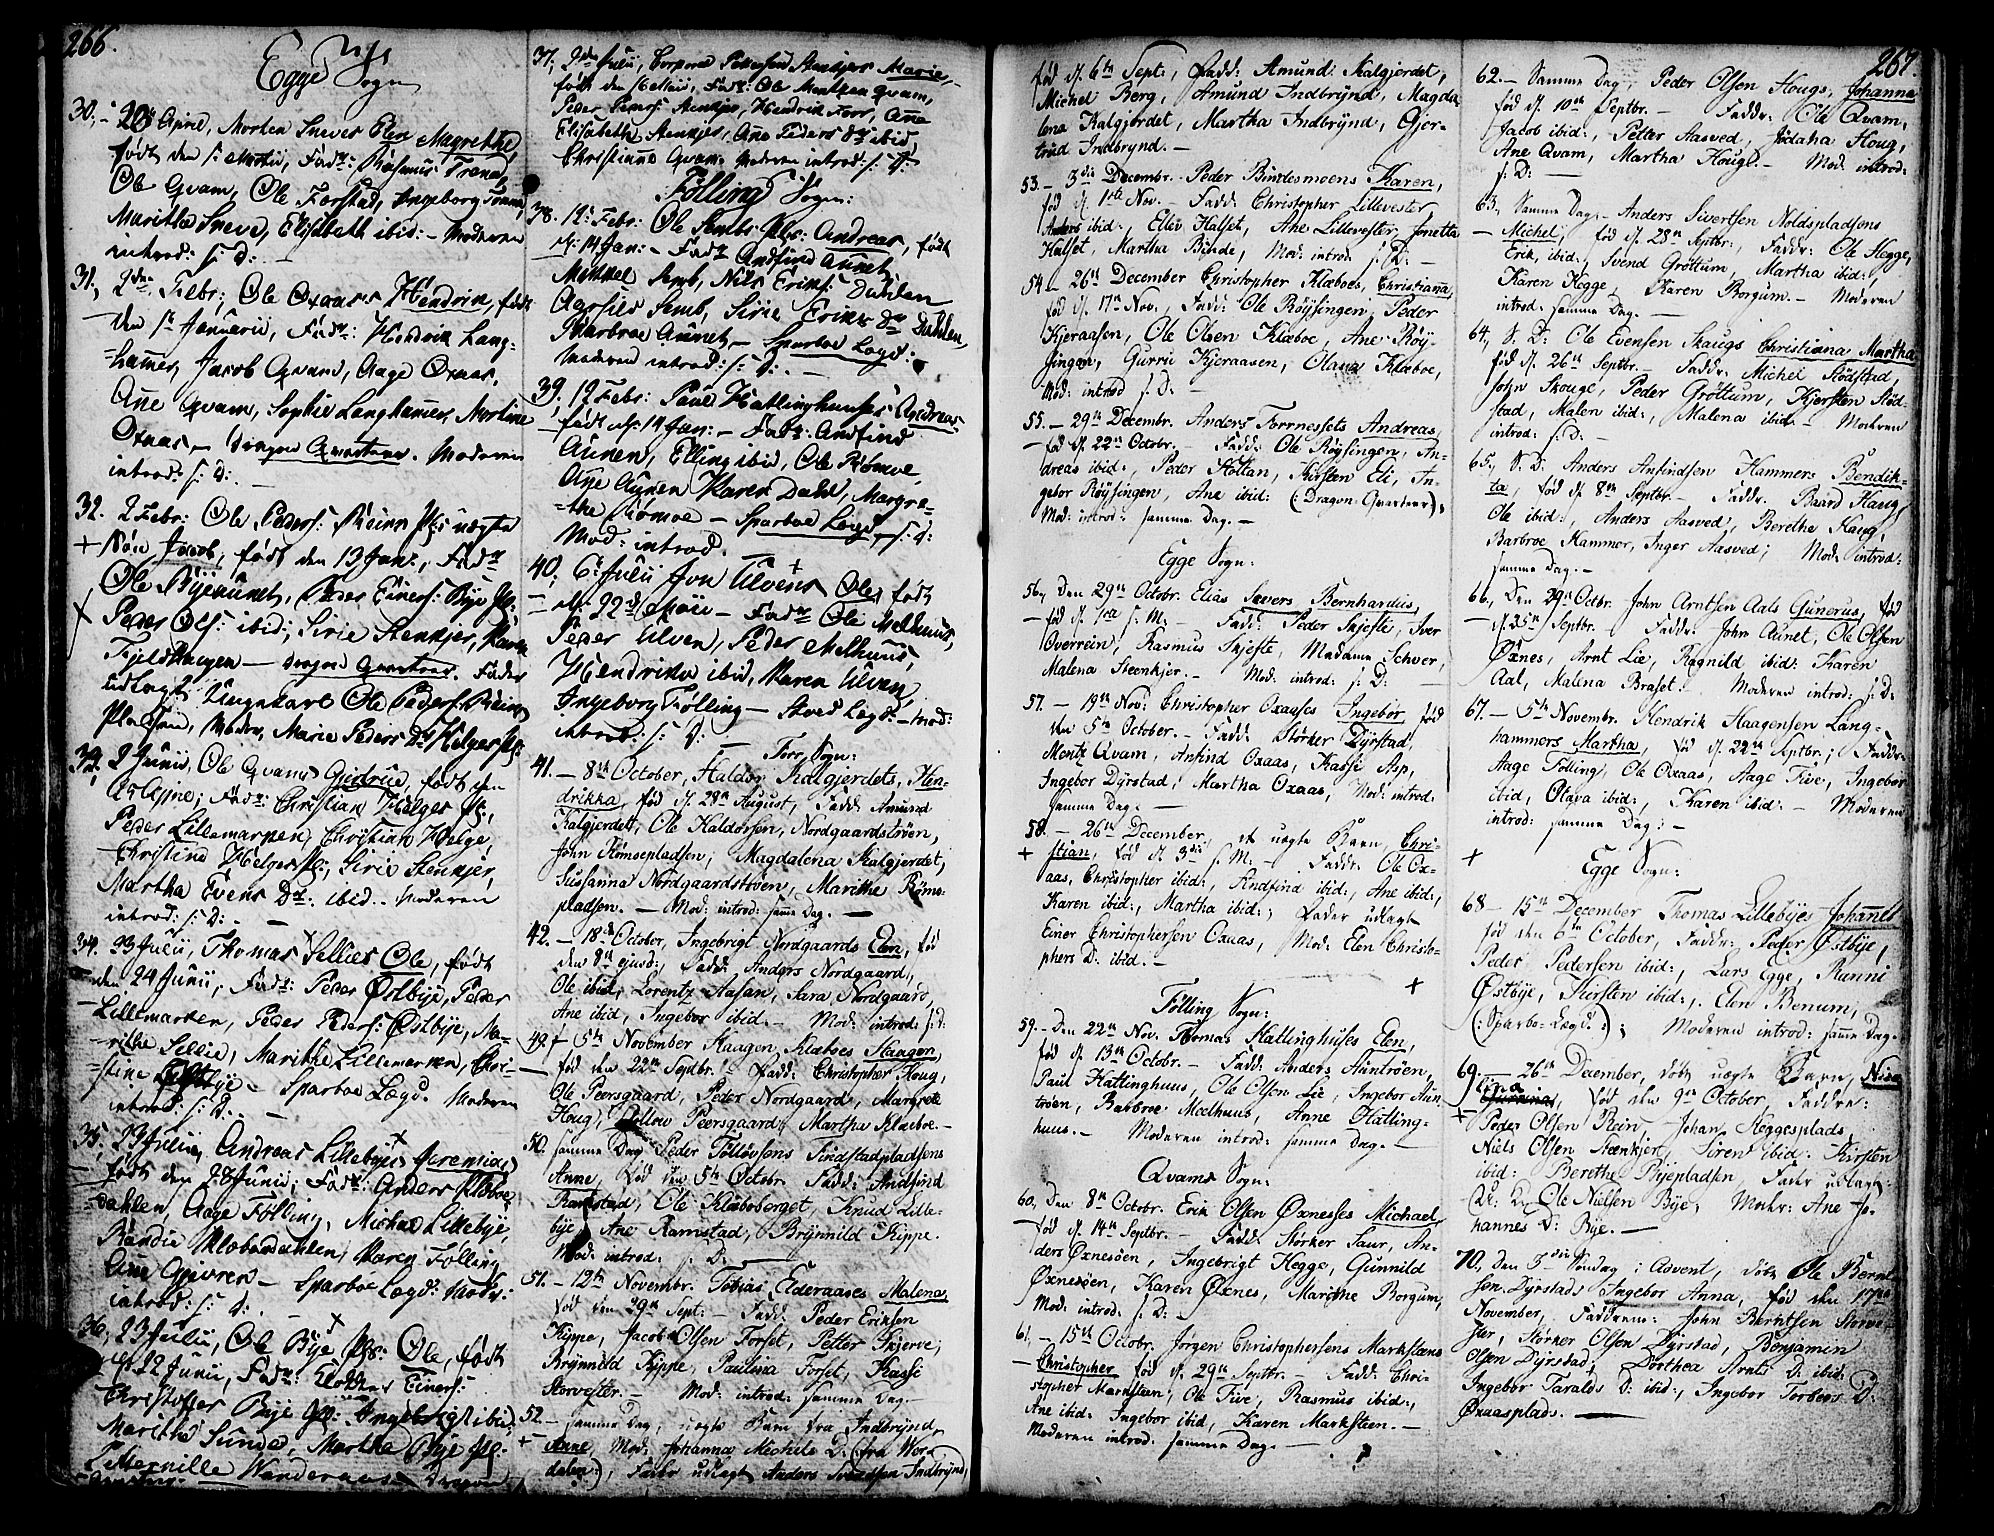 266.
Egge Sogn
30, - April, Morten Sneves Elen Magrethe,
født den Martii, Fadr: Rasmus Trana,
Ole Qvam, Ole Førstad, Ingeborg
Marithe Sneve, Elisabeth ibid: - Moderen
introd: s: D: -
31, 2den Febr; Ole Oxaas Hendrik, født
den Januarii, Fadr: Hendrik Lang-
hammer, Jacob Qvam, Aage Oxaas,
Ane Qvam, Sophie Langhammer, Martine
Oxaas - dragon Qvarteer. Moderen
introd: s: D: -
32. 2 Febr: Ole Peders: Reins Pl: uægte
+ Søn Jacob, født den 13 Jan:, Fadr
Ole Byeaunet, Peder Einers: Bye Pl:
Peder Ols: ibid; Sirie Stenkjer, Karen
Fieldhaugen - dragon Qvarteer. Fader
udlagt Ungekarl Ole Peders: Rein
Pladsen, Moder, Marie Peders Dr Helges Pl:
2 Junii, Ole Qvams Gjertrue, født den
Aprilis; Fadr: Christian Helges Pl:,
Peder Lillemarken, Christian Helge,
Christine Helges Pl:, Sirie Stenkjer,
Martha Evens Dr: ibid.. Moderen
introd: s: D: -
34. 23 Julii, Thomas Sellies Ole, født
den 24 Junii, Fadr: Peder Østbye, Peder
Lillemarken, Peder Peders: Østbye, Ma-
rithe Sellie, Marithe Lillemarken, Chri-
stine Østbye - Sparboe Lægd. Moderen
introd: s: D: -
35, 23 Julii, Andreas Lillebyes Jeremias,
født den 28 Junii, Fadr: Anders Klæboe
dahlen, Aage Følling, Michael Lillebye,
Randie Klæboedahlen, Karen Følling
Ane Gjevren - Sparboe Lægd: Moder:
introd: s: D: -
36, 23 Julii, Ole Bye Pl: Ole, født
d: 22 Junii, Fadr: Einers:
Christopher Bye Pl: Ingebrigt ibid,
Marithe Sunde, Martha Bye Pl:
Pernille Wanderaas - Dragon
Qvarteer:
37, Julii, Corporal Stenkjers Marie,
født den Julii, Fadr: Ole Qvam,
Peder Peders: Stenkjer, Hendrik Forr, Ane
Elisabeth Stenkjer, Ane Peders Dr ibid,
Christianne Qvam. Moderen introd: s: D:
Føllings Sogn:
38. 12 Febr: Ole Sembs Pl: Andreas, født
d: 14 Jan: - Fadr Andfind Aunet,
Mikkel Semb, Nils Eriks: Dahlen
Semb, Sirie Eriks Dr Dahlen,
Barbroe Aunet - Sparboe Lægd:
Moderen introd: s: D: -
39, 12 Febr: Paul Hatlinghuuses Andreas
født d: 14 Jan: - Fadr: Andfind
Aunen, Elling ibid, Ole Rømoe,
Ane Aunen Karen Dahl, Margre-
the Rømoe - Sparboe Lægd, s: D:
Mod: introd.
40, 6 Julii Jon Ulvens Ole, født
d: 22d Maii - Fadr Ole Melhuus,
Peder Ulven, Peder Melhuus,
Hendrikke ibid, Karen Ulven,
Ingeborg Følling - Stoed Lægd - Mod:
introd: s: D: -
Forr Sogn:
41. - 8de October, Haldor Kalgjerdets, Hen-
drikka, fød d. 29de August, Fadd: Amund
Kalgjerdet, Ole Haldorsen, Nordgaardstrøen,
John Rømsepladsen; Magdalena Kalgjerdet,
Susanna Nordgaardstrøen, Marithe Røms-
pladsen. - Mod: introd: same Dag. -
42. - 18de October, Ingebrigt Nordgaards Elen, fød
den 8de ejusd:, Fadd: Anders Nordgaard,
Ole ibid, Lorentz Aasan, Sara Nordgaard,
Ane ibid, Ingebor ibid. - Mod: introd: s: D:
49. + 5te November Haagen Klæboes Haagen,
fød den 22de Septbr. - Fadd: Christopher Houg,
Ole Peersgaard, Peder Nordgaard, Margrete
Houg, Peersgaard, Martha Klæboe. -
50. samme Dag Peder Tolløvsens Rindstadpladsens
Anne, fød den 5te Octobr. Fadd: Andfind
Ramstad, Ole Klæboberget, Knud Lille-
bye, Ane Ramstad, Brynnild Kippe.
Mod: introd: s: D: -
51. - 12te Novembr. Tobias Elderaases Malena,
fød den 29de Sept: - Fadd: Peder Eriksen
Kippe, Jacob Olsen Forset, Petter Skjerve,
Brynnild Kippe, Paulina Forset, Kassi
Storvester. - Mod: introd: samme Dag. -
52. - samme Dag, uægte Barn fra Indbrynd,
Anne, Mod: Johanna Michels D: (fra Wær-
dalen:), Fader udlagt Anders Svendsen Indbrynd,
267.
fød d. 6te Sept:, Fadd: Amund Kalgjerdet,
Michel Berg, Amund Indbrynd, Magda-
lena Kalgjerdet, Martha Indbrynd, Gjer-
trud Indbrynd. -
53. - 3die Decembr. Peder Bindesmoens Karen,
fød d. 1ste Nov. - Fadd: Christopher Lillevester
Anders ibid:, Ellev Halset, Ane Lillevester, Jonetta
Halset, Martha Binde, Mod: introd. s: D: -
54 - 26de December Christopher Klæboes, Christiana,
fød d. 17de Nov. Fadd: Ole Røysingen, Peder
Kjeraasen, Ole Olsen Klæboe, Ane Røy-
singen, Gurru Kjeraasen, Olava Klæboe,
Mod: introd s: D:
55. - 29de Decembr. Anders Forrnessets Andreas,
fød d. 22de Octobr. - Fadd: Ole Røysingen, An-
dreas ibid:, Peder Holtan, Kirsten Eli, In-
gebor Røysingen, Ane ibid: (:Dragon-Qvarteer);
Mod: introd: samme Dag. -
Egge Sogn:
56, Den 29de Octobr. Elias Severs Bernhardus,
fød d. 1ste s: M. - Fadd: Peder Skjefte, Iver
Overrein, Rasmus Skjefte, Madame Schver,
Malena Steenkjer. - Mod: introd: s: D:
57. - 19de Nov: Christopher Oxaases Ingebor fød
den 5te October. - Fadd: Størker Dyrstad,
Mentz Qvam, Anfind Oxaas, Kassje Asp,
Ingebor Dyrstad, Martha Oxaas, Mod: introd:
samme Dag. -
58. - 26de December, et uægte Barn, Chri-
+ stian, fød d. 3die s. M. - Faddr: Ole Ox-
aas, Christopher ibid:, Andfind ibid:, Ane ibid:,
Karen ibid:, Martha ibid:; Fader udlagt
Einer Christophersen Oxaas, Mod: Elen Christo-
phers D: ibid. -
+
Følling Sogn:
59. - Den 22de Nov. Thomas Hallinghuses Elen,
fød d. 13de Octobr. - Fadd: Anders Auntrøen,
Paul Hattinghuus, Ole Olsen Lie, Ingebor Aun-
trøen, Barbroe Meelhuus, Anne Hatling-
huus. - Moderen introd: samme Dag. -
Qvams Sogn:
60, Den 8de Octobr. Erik Olsen Øxnesses Michael,
fød d. 14de Septbr. - Fadd: Størker Saur, An-
ders Øxnesøen, Ingebrigt Hegge, Gunnild
Øxnesøen, Karen Øxnes, Marithe Borgum,
Mod: introd: s: D: -
61, - 15de Octobr. Jørgen Christophersens Marksteens
- Christopher fød d. 29de Septbr. - Fadd: Chri-
stopher Marksteen, Ole Five, Rasmus ibid:,
Ane ibid: Ingebor ibid, Karen Marksteen. -
Moderen introd: samme Dag. -
62. - Samme Dag, Peder Olsen Hougs, Johanna
fød d. 10de Septbr. - Faddr: Ole Qvam,
Jacob ibid:, Petter Aasved, Houg,
Ane Qvam, Martha Houg. - Mod: introd:
s: D: -
63, Samme Dag. - Anders Sivertsen Noldspladsens
- Michel, fød d. 28de Septbr:, Faddr: Ole Hegge,
Erik, ibid:, Svend Grøttum, Martha ibid:,
Karen Hegge, Karen Borgum. - Moderen
introd: samme Dag. -
64, S. D: Ole Evensen Skaugs Christiana Martha
fød d. 26de Septbr. - Faddr: Michel Stødstad,
John Skouge, Peder Grøttum, Kjersten Stød-
stad, Malen ibid:, Malena ibid. - Moderen
introd: s: D: -
65, S. D: Anders Anfindsen Hammers Bendik-
ta, fød d. 8de Septbr. - Faddr: Baard Haug,
Ole ibid:, Anders Aasved, Berethe Haug,
Barbroe Hammer, Inger Aasved; Mod: introd:
samme Dag. -
66, Den 29de Octbr. John Arntsen Aals Gunerus, fød
d. 25de Septbr. - Faddr: John Aunet, Ole Olsen
Øxnes, Arnt Lie, Ragnild ibid: Karen
Aal, Malena Braset. Moderen introd: s: D:
67. - 5te Novembr. Hendrik Haagensen Lang-
hammers Martha, fød d. 22de Septbr.; Faddr:
Aage Følling, Ole Oxaas, Aage Five, Ingebor
ibid, Olava ibid:, Karen ibid: - Moderen
introd: samme Dag: -
+
Egge Sogn:
68 - 15de December Thomas Lillebyes Johannes
fød den 6te October, Faddr: Peder Østbye,
Peder Pedersen ibid:, Lars Egge, Ranni
Østbye, Kirsten ibid:, Elen Benum,
(:Sparbo-Lægd.:); Moderen introd: same Dag. -
69, - 26de December, døbt uægte Barn, Nico-
lina, fød den 9de October, Faddrne:
+ Peder Olsen Rein, Johan Heggesplads,
Niels Olsen Steenkjer, Siren ibid: Kirsten
ibid: Berethe Byepladsen, Fader udlagt:
Ole Nielsen Bye, Moder: Ane Jo-
hannes D: Bye. -
70, Den 3die Søndag i Advent, døbt Ole Bernt-
sen Dyrstads Ingebor Anna, fød den 17de
November, Faddrene: John Berntsen Storve-
ster, Størker Olsen Dyrstad, Benjamin
Olsen Dyrstad, Dorthea Arnts D: ibid:
Ingebor Taralds D: ibid:, Ingebor Torbers D:
Oxaasplads. -